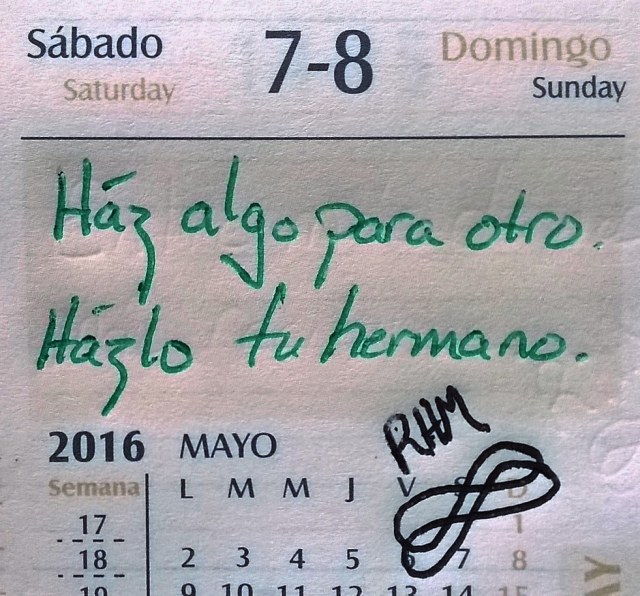 Sábado 7-8 Domingo
Saturday Sunday
Ház algo para otro.
Házlo tu hermano.
RHM
2016 MAYO
Semana L M M J V S D
17 1
18 2 3 4 5 6 7 8
19 9 10 11 12 13 14 15